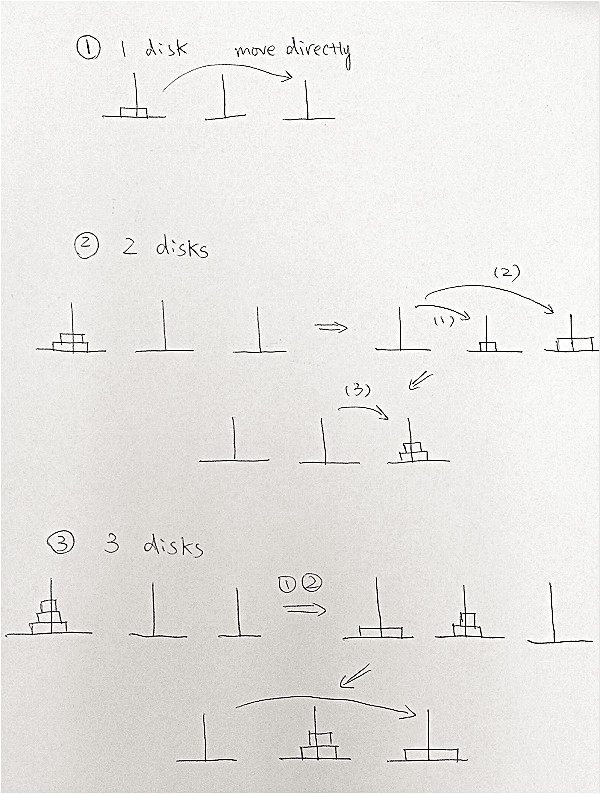 ① 1 disk move directly
② 2 disks
(2)
(1)
(3)
③ 3 disks
① ②